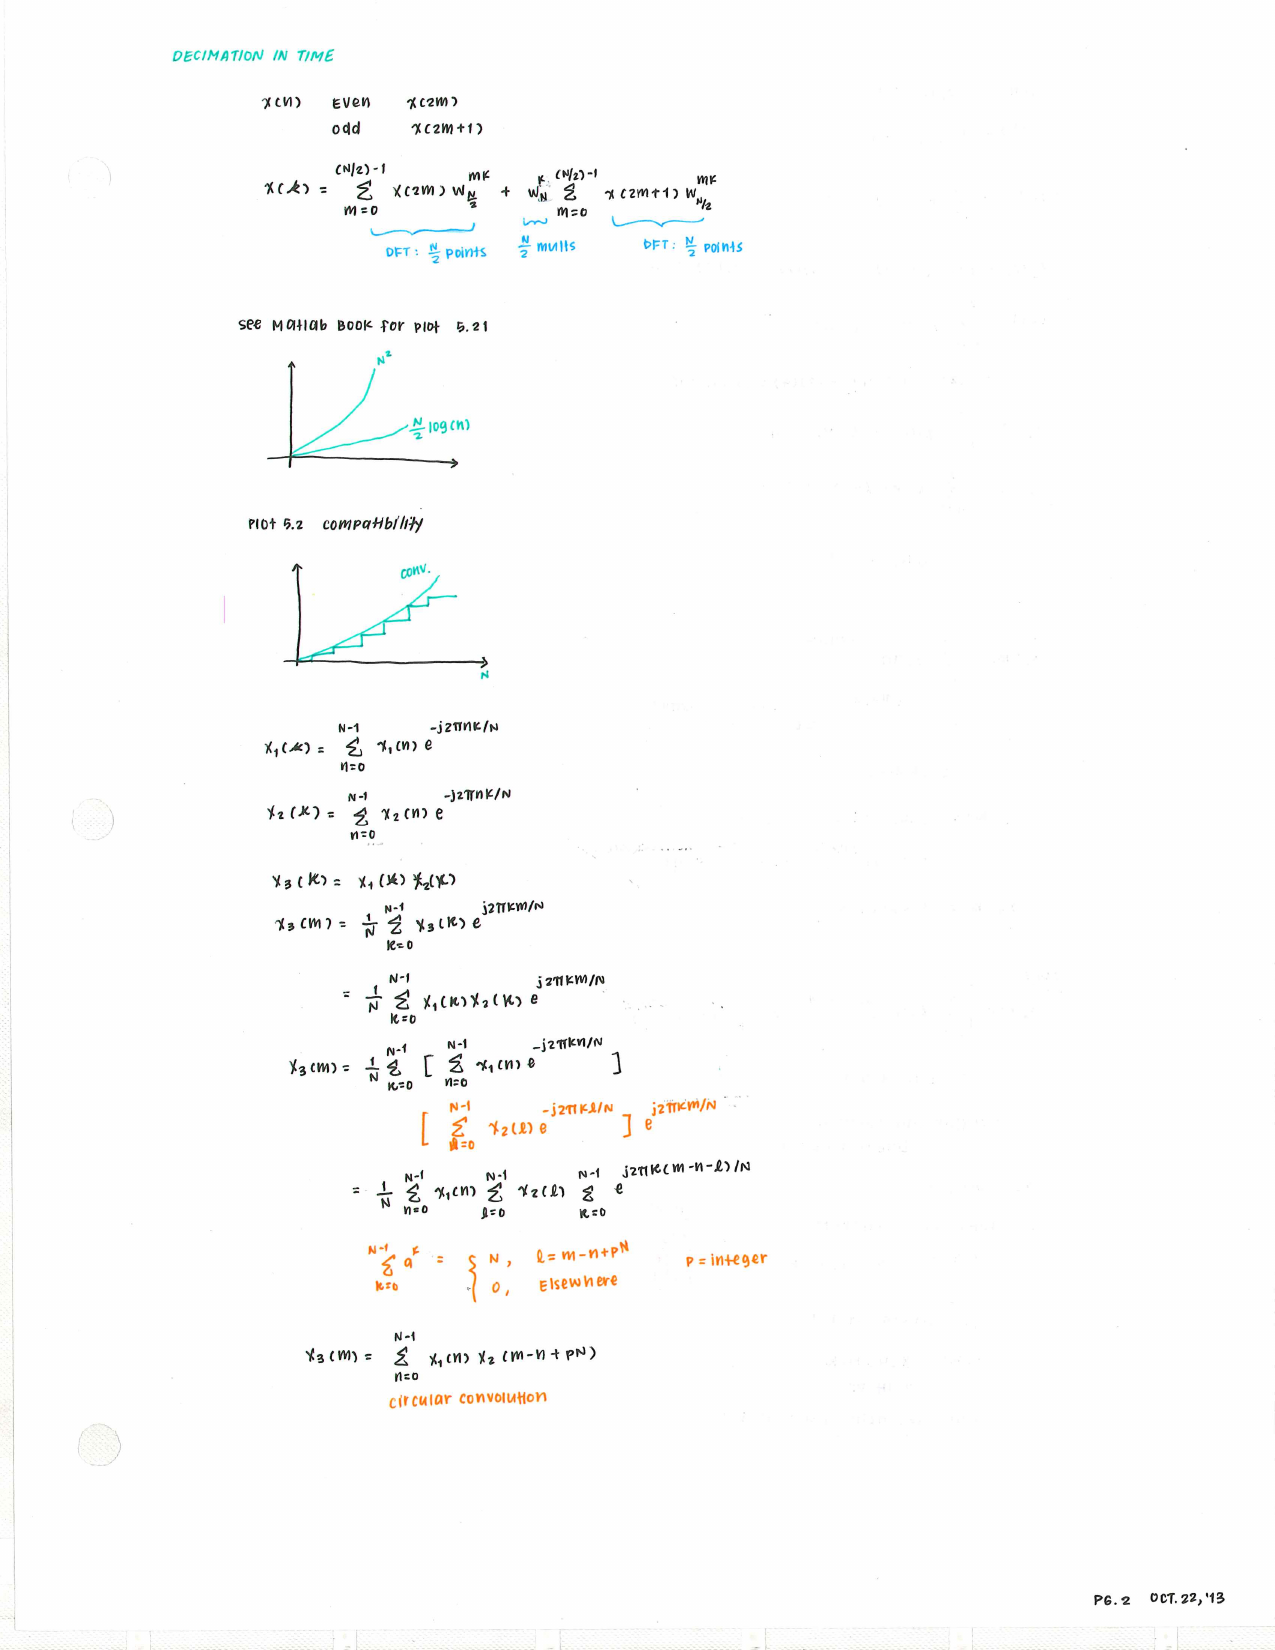 DECIMATION IN TIME
x(n) Even x(2m)
odd x(2m+1)
X(k) = Σ_{m=0}^{(N/2)-1} x(2m) W_{N/2}^{mk} + W_N^k Σ_{m=0}^{(N/2)-1} x(2m+1) W_{N/2}^{mk}
DFT: N/2 points N/2 mults DFT: N/2 points
see Matlab Book for plot 5.21
N²
N/2 log(n)
Plot 5.2 compatibility
conv.
N
X₁(k) = Σ_{n=0}^{N-1} x₁(n) e^{-j2πnk/N}
X₂(k) = Σ_{n=0}^{N-1} x₂(n) e^{-j2πnk/N}
X₃(k) = X₁(k) X₂(k)
x₃(m) = 1/N Σ_{k=0}^{N-1} X₃(k) e^{j2πkm/N}
= 1/N Σ_{k=0}^{N-1} X₁(k) X₂(k) e^{j2πkm/N}
X₃(m) = 1/N Σ_{k=0}^{N-1} [ Σ_{n=0}^{N-1} x₁(n) e^{-j2πkn/N} ]
[ Σ_{l=0}^{N-1} x₂(l) e^{-j2πkl/N} ] e^{j2πkm/N}
= 1/N Σ_{n=0}^{N-1} x₁(n) Σ_{l=0}^{N-1} x₂(l) Σ_{k=0}^{N-1} e^{j2πk(m-n-l)/N}
Σ_{k=0}^{N-1} a^k = { N, l = m-n+pN P = integer
0, Elsewhere
X₃(m) = Σ_{n=0}^{N-1} x₁(n) x₂(m-n+pN)
circular convolution
PG. 2 OCT. 22, '13